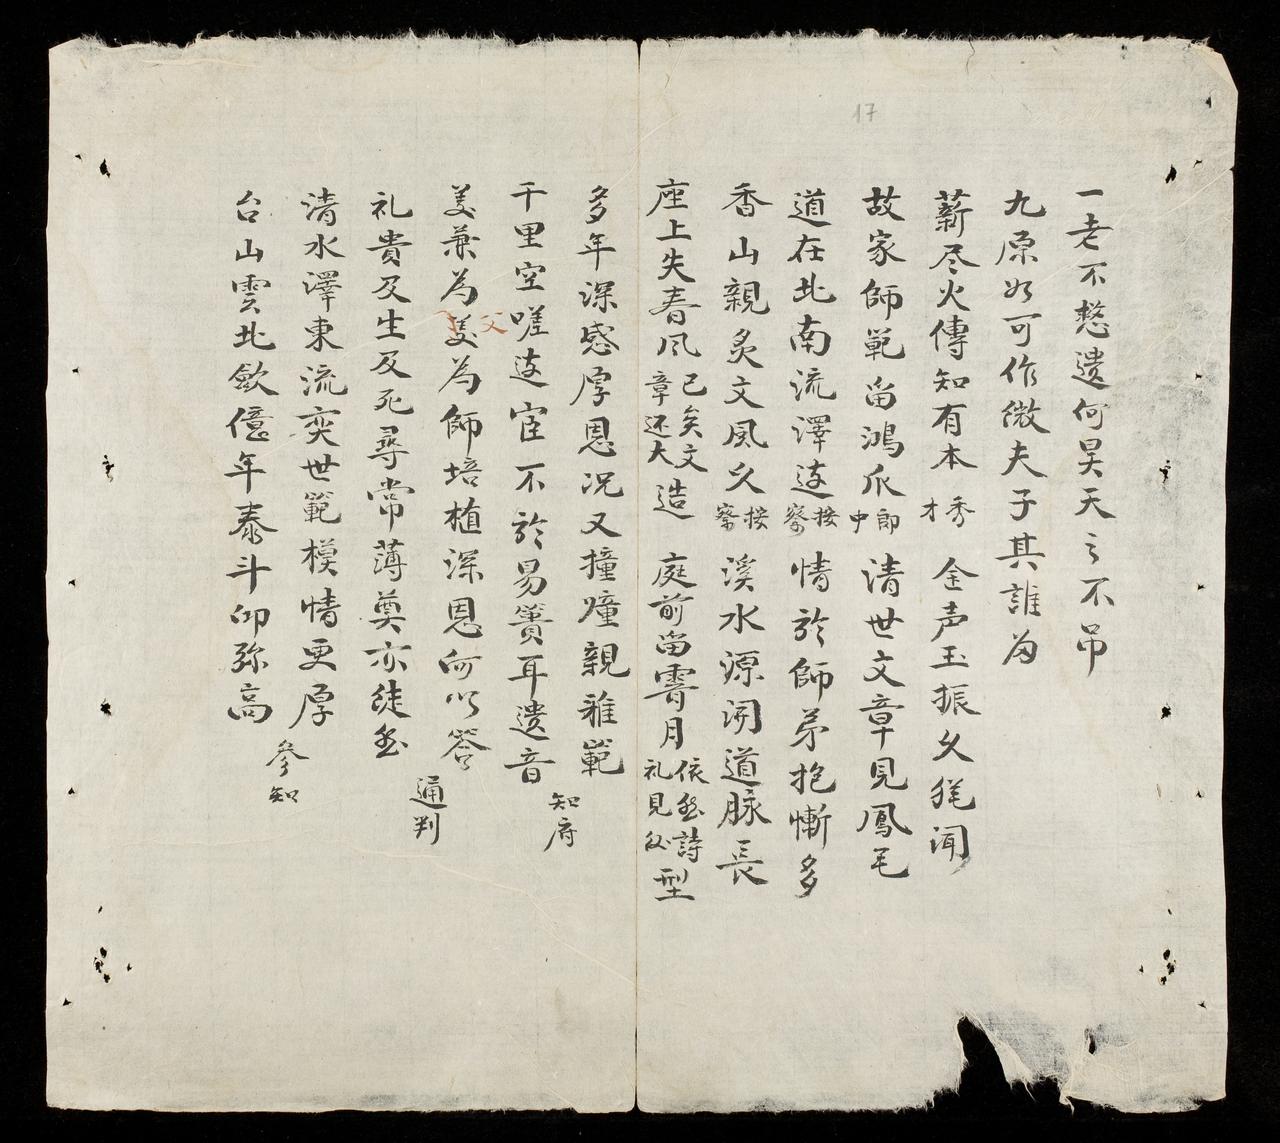 17
一老不憖遺何昊天之不吊
九原如可作微夫子其誰为
薪尽火傳知有本 秀才 金声玉振久経聞
故家師範畄鴻爪 郎中 清世文章見鳳毛
道在北南流澤逺 按察 情於師弟抱慚多
香山親炙文風久 按察 溪水源開道脉長
座上失春风已矣文章还大造 庭前畄霽月依然詩礼見公型
多年深感厚恩况又撞瞳親雅範
千里空嗟逺宦不於易簀耳遗音 知府
美兼为美父为師培植深恩何以答
礼貴及生及死尋常薄奠亦徒然 通判
清水澤東流奕世範模情更厚
台山雲北歛億年泰斗仰弥高 參知